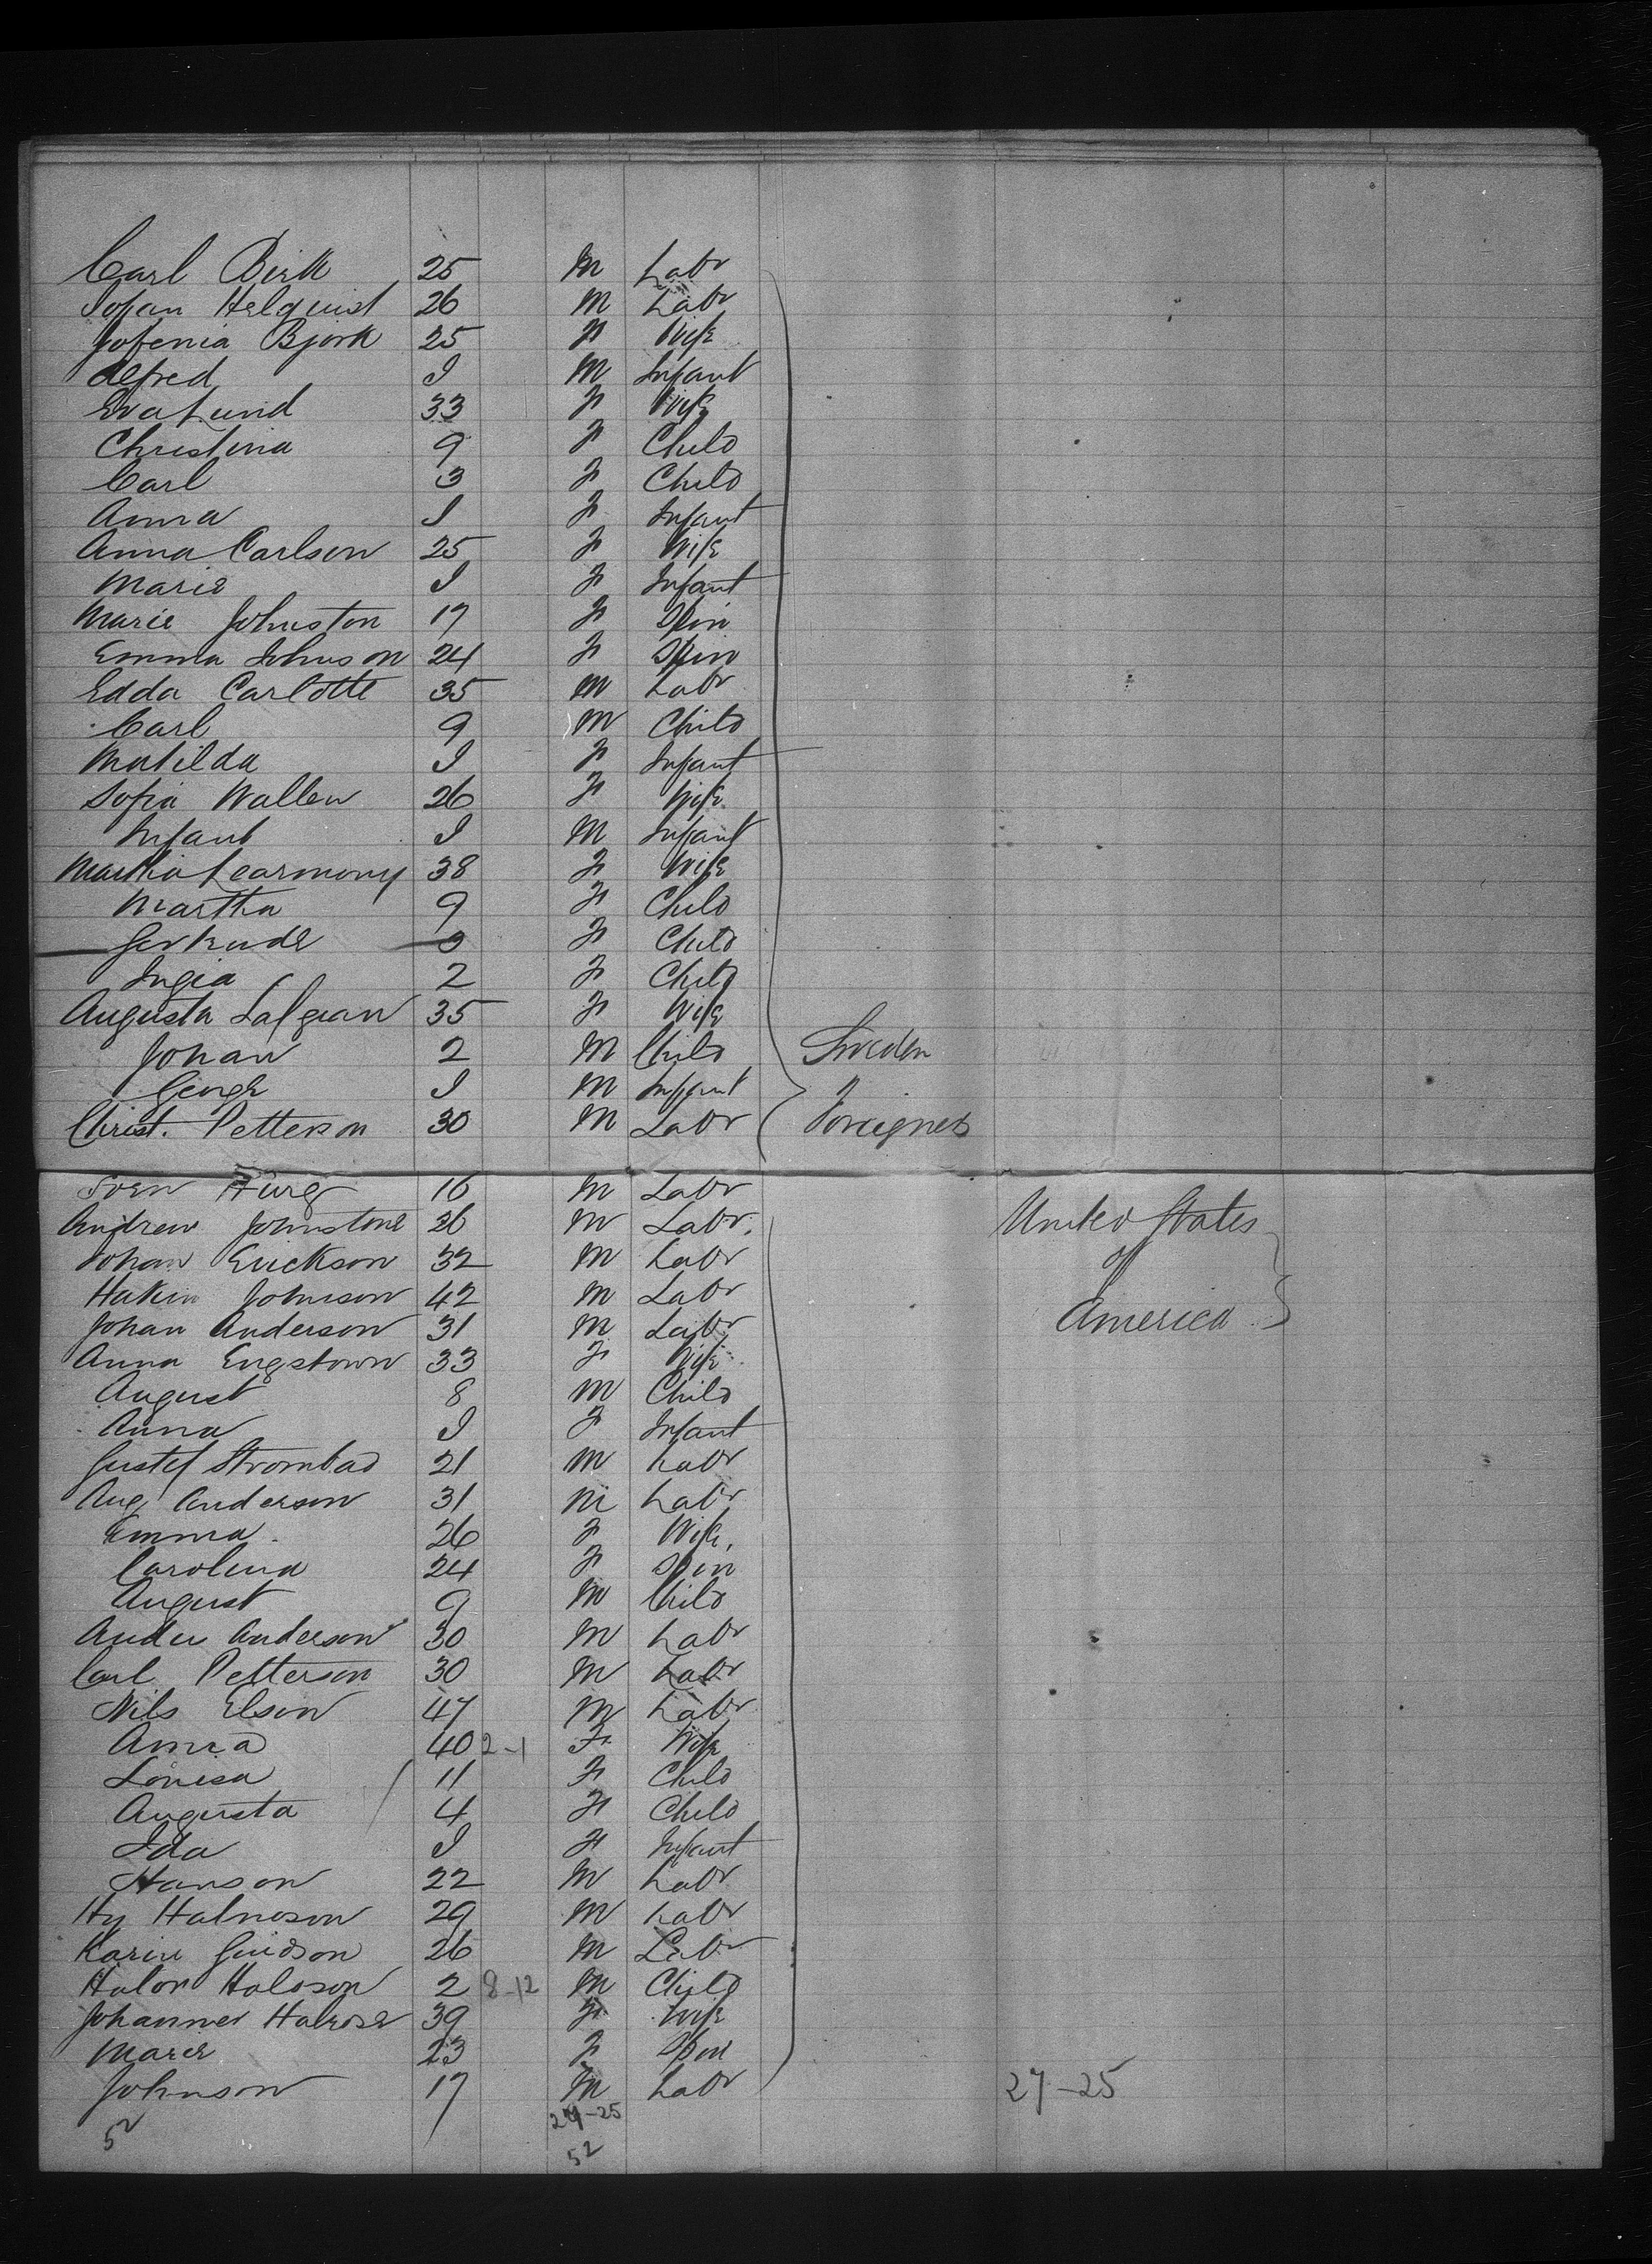 Carl Birk 25 M Labr
Johan Helquist 26 M Labr
Jofenia Bjork 25 F Wife
Alfred I M Infant
Eva Lund 33 F Wife
Christina 9 F Child
Carl 3 F Child
Anna I F Infant
Anna Carlson 25 F Wife
Marie I F Infant
Marie Johnston 17 F Spin
Emma Johnson 24 F Spin
Edda Carlotte 35 M Labr
Carl 9 M Child
Matilda I F Infant
Sofia Wallen 26 F Wife
Infant I M Infant
Martha Learmony 38 F Wife
Martha 9 F Child
Gertrude 3 F Child
Ingia 2 F Child
Augusta 35 F Wife
Johan 2 M Child Sweden
George I M Infant
Christ. Petterson 30 M Labr Foreigners
Sven 16 M Labr
Andrew Johnstone 26 M Labr. United States
Johan Erickson 32 M Labr of
Hakin Johnson 42 M Labr
Johan Anderson 31 M Labr America
Anna Engstown 33 F Wife
August 8 M Child
Anna I F Infant
Gustef Strombad 21 M Labr
Aug Anderson 31 M Labr
Emma 26 F Wife
Carolina 24 F Spin
August 9 M Child
Ander Anderson 30 M Labr
Carl Petterson 30 M Labr
Nils Elson 47 M Labr
Anna 40 2-1 F Wife
Louisa 11 F Child
Augusta 4 F Child
Ida I F Infant
Hanson 22 M Labr
Hy Halneson 29 M Labr
Karin Guidson 26 M Labr
Halor Haloson 2 8-12 M Child
Johanne Halrose 39 F Wife
Marie 23 F Spin
Johnson 17 M Labr 27-25
52 27-25
52